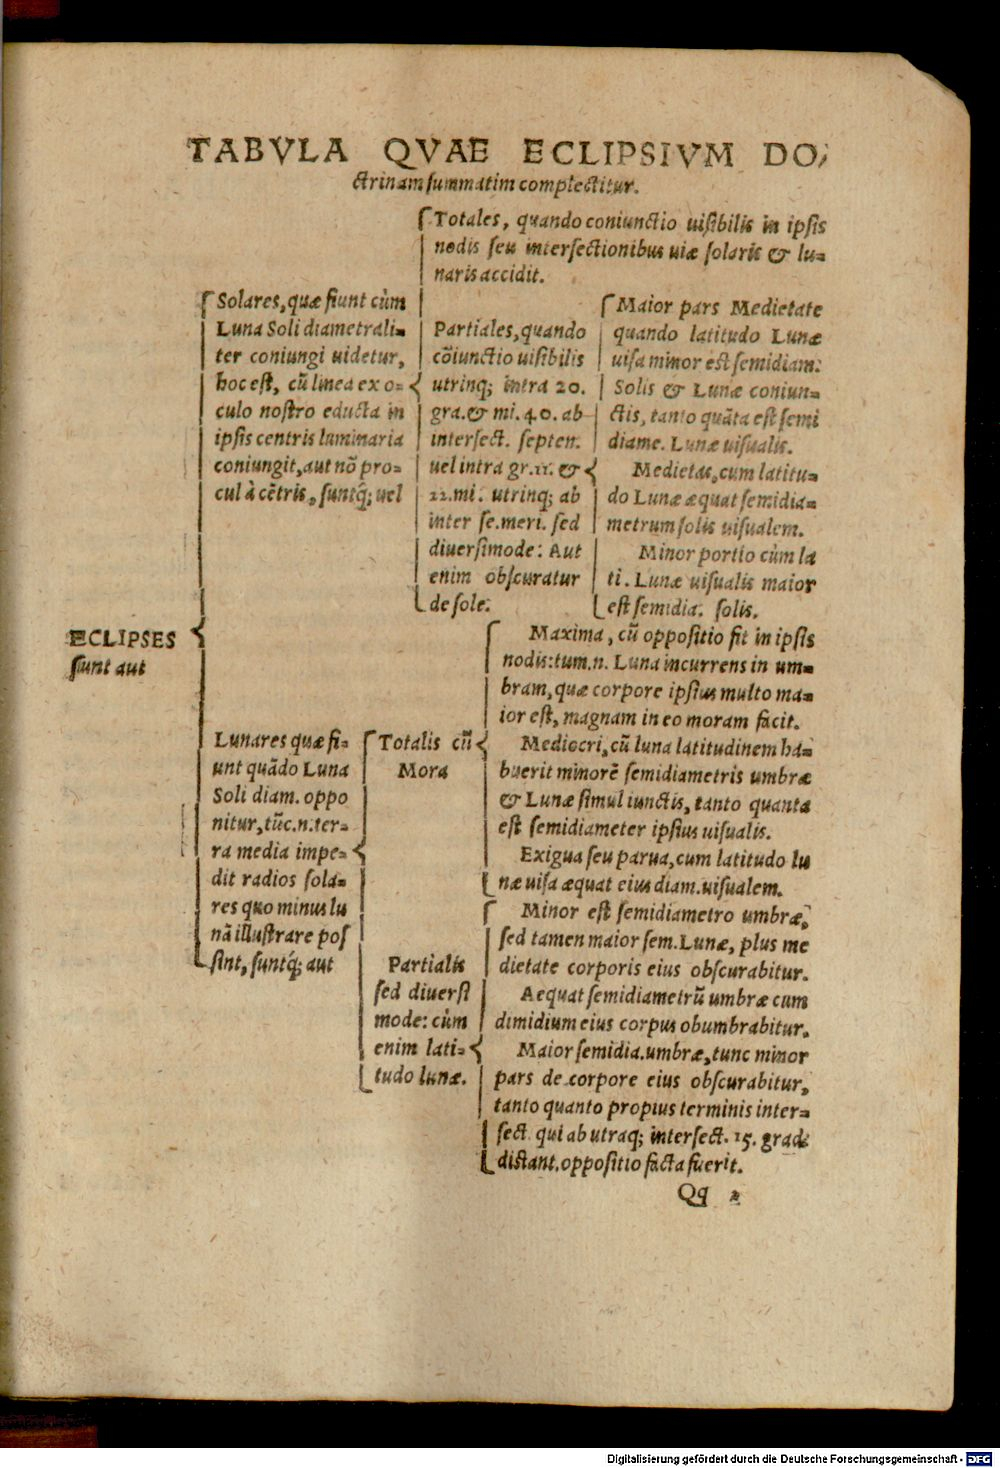 TABVLA QVAE ECLIPSIVM DO/
ctrinam summatim complectitur.
Totales, quando coniunctio uisibilis in ipsis
nodis seu intersectionibus uiæ solaris & lu=
naris accidit.
Solares, quæ fiunt cùm
Luna Soli diametrali=
ter coniungi uidetur,
hoc est, cũ linea ex o=
culo nostro educta in
ipsis centris luminaria
coniungit, aut nõ pro=
cul à cẽtris, suntq́; uel
Partiales, quando
cõiunctio uisibilis
utrinq; intra 20.
gra. & mi. 40. ab
intersect. septen.
uel intra gr. 11. &
22. mi. utrinq; ab
inter se. meri. sed
diuersimode: Aut
enim obscuratur
de sole:
Maior pars Medietate
quando latitudo Lunæ
uisa minor est semidiam:
Solis & Lunæ coniun=
ctis, tanto quãta est semi
diame. Lunæ uisualis.
Medietas, cum latitu=
do Lunæ æquat semidia=
metrum solis uisualem.
Minor portio cùm la
ti. Lunæ uisualis maior
est semidia. solis.
ECLIPSES
sunt aut
Lunares quæ fi=
unt quãdo Luna
Soli diam. oppo
nitur, tũc. n. ter=
ra media impe=
dit radios sola=
res quo minus lu
nã illustrare pos
sint, suntq́; aut
Totalis cũ
Mora
Maxima, cũ oppositio fit in ipsis
nodis: tum. n. Luna incurrens in um=
bram, quæ corpore ipsius multo ma=
ior est, magnam in eo moram facit.
Mediocri, cũ luna latitudinem ha=
buerit minorẽ semidiametris umbræ
& Lunæ simul iunctis, tanto quanta
est semidiameter ipsius uisualis.
Exigua seu parua, cum latitudo lu
næ uisa æquat eius diam. uisualem.
Partialis
sed diuersi
mode: cùm
enim lati=
tudo lunæ.
Minor est semidiametro umbræ,
sed tamen maior sem. Lunæ, plus me
dietate corporis eius obscurabitur.
Aequat semidiametrũ umbræ cum
dimidium eius corpus obumbrabitur.
Maior semidia. umbræ, tunc minor
pars de corpore eius obscurabitur,
tanto quanto propius terminis inter=
sect. qui ab utraq; intersect. 15. grad:
distant, oppositio facta fuerit.
Qq 2
Digitalisierung gefördert durch die Deutsche Forschungsgemeinschaft - DFG